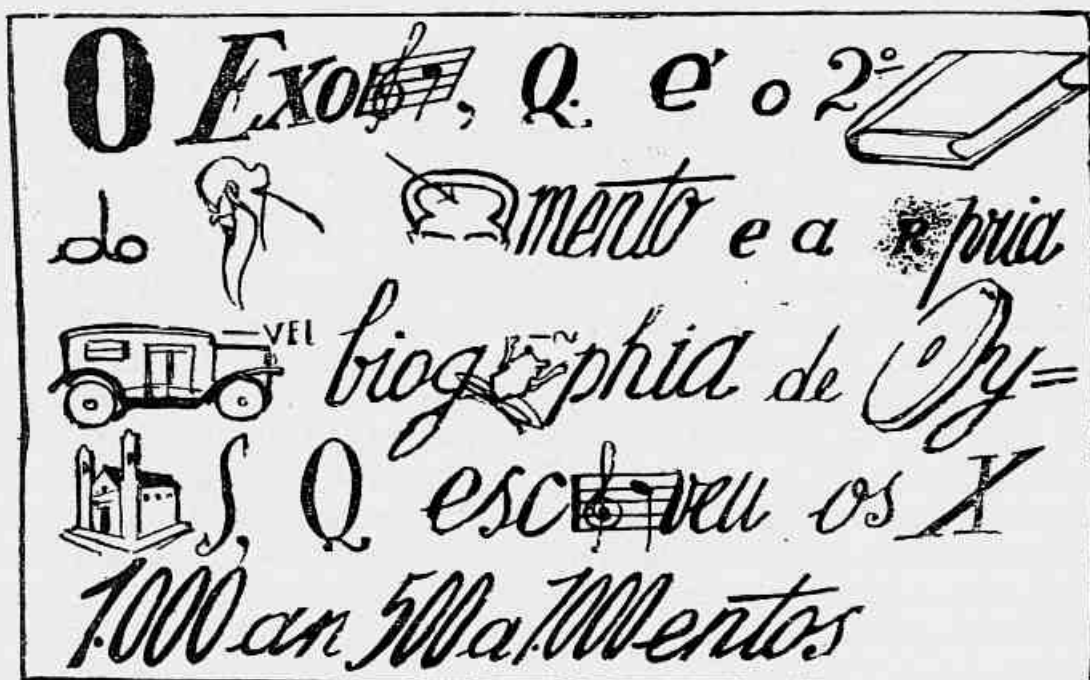 O Exo , Q. é o 2º
do mento e a R pria
VEL biog phia de y=
S, Q esc veu os X
1.000 an 500 a 1.000 entos